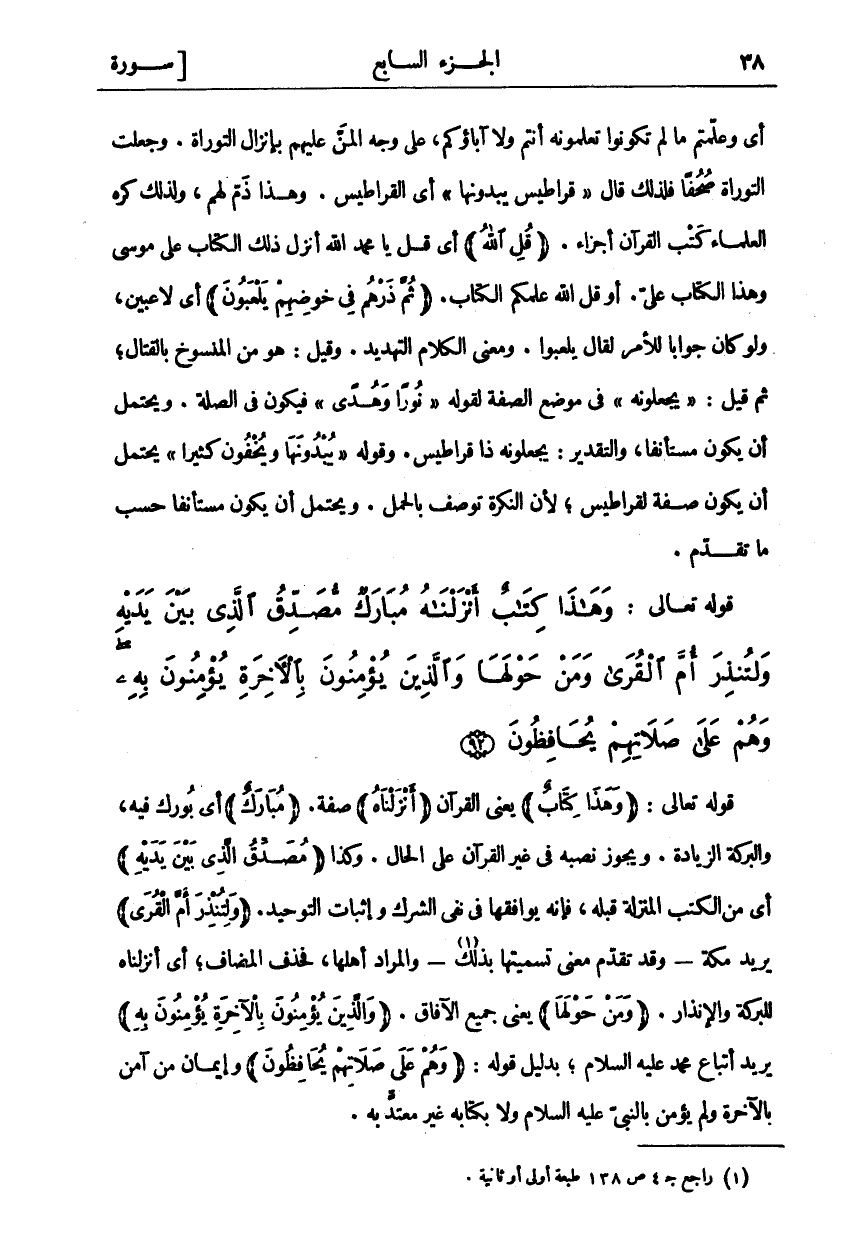 ٣٨ الجـزء السـابع [سـورة
أى وعلّمتم ما لم تكونوا تعلمونه أنتم ولا آباؤكم، على وجه المنّ عليهم بإنزال التوراة . وجعلت
التوراة صُحُفًا فلذلك قال « قراطيس يبدونها » أى القراطيس . وهـذا ذَمّ لهم ، ولذلك كره
العلمـاء كَتْب القرآن أجزاء . ﴿ قُلِ ٱللهُ ﴾ أى قـل يا محمد الله أنزل ذلك الكتاب على موسى
وهذا الكتاب علىّ . أو قل الله علمكم الكتاب . ﴿ ثُمَّ ذَرْهُمْ فِى خوضِهِمْ يَلْعَبُونَ ﴾ أى لاعبين ،
ولو كان جوابا للأمر لقال يلعبوا . ومعنى الكلام التهديد . وقيل : هو من المنسوخ بالقتال؛
ثم قيل : « يجعلونه » فى موضع الصفة لقوله « نُورًا وَهُـدًى » فيكون فى الصلة . ويحتمل
أن يكون مستأنفا ، والتقدير : يجعلونه ذا قراطيس . وقوله « يُبْدُونَهَا ويُخْفُون كثيرا » يحتمل
أن يكون صـفة لقراطيس ؛ لأن النكرة توصف بالجمل . ويحتمل أن يكون مستأنفا حسب
ما تقـدّم .
قوله تعـالى : وَهَـٰذَا كِتَـٰبٌ أَنْزَلْنَـٰهُ مُبَارَكٌ مُّصَـدِّقُ ٱلَّذِى بَيْنَ يَدَيْهِ
وَلِتُنذِرَ أُمَّ ٱلْقُرَىٰ وَمَنْ حَوْلَهَـا وَٱلَّذِينَ يُؤْمِنُونَ بِٱلْآخِرَةِ يُؤْمِنُونَ بِهِۦ ۖ
وَهُمْ عَلَىٰ صَلَاتِهِمْ يُحَـافِظُونَ ﴿٩٢﴾
قوله تعالى : ﴿ وَهَذَا كِتَابٌ ﴾ يعنى القرآن ﴿ أَنْزَلْنَاهُ ﴾ صفة . ﴿ مُبَارَكٌ ﴾ أى بُورك فيه ،
والبركة الزيادة . ويجوز نصبه فى غير القرآن على الحال . وكذا ﴿ مُصَـدِّقُ الَّذِى بَيْنَ يَدَيْهِ ﴾
أى من الكتب المنزلة قبله ، فإنه يوافقها فى نفى الشرك وإثبات التوحيد . ﴿ وَلِتُنْذِرَ أُمَّ الْقُرَى ﴾
يريد مكة — وقد تقدّم معنى تسميتها بذلك (١) — والمراد أهلها ، فحذف المضاف؛ أى أنزلناه
للبركة والإنذار . ﴿ وَمَنْ حَوْلَهَا ﴾ يعنى جميع الآفاق . ﴿ وَالَّذِينَ يُؤْمِنُونَ بِالْآخِرَةِ يُؤْمِنُونَ بِهِ ﴾
يريد أتباع محمد عليه السلام ؛ بدليل قوله : ﴿ وَهُمْ عَلَى صَلَاتِهِمْ يُحَافِظُونَ ﴾ وإيمـان من آمن
بالآخرة ولم يؤمن بالنبىّ عليه السلام ولا بكتابه غير معتدٍّ به .
(١) راجع جـ ٤ ص ١٣٨ طبعة أولى أو ثانية .